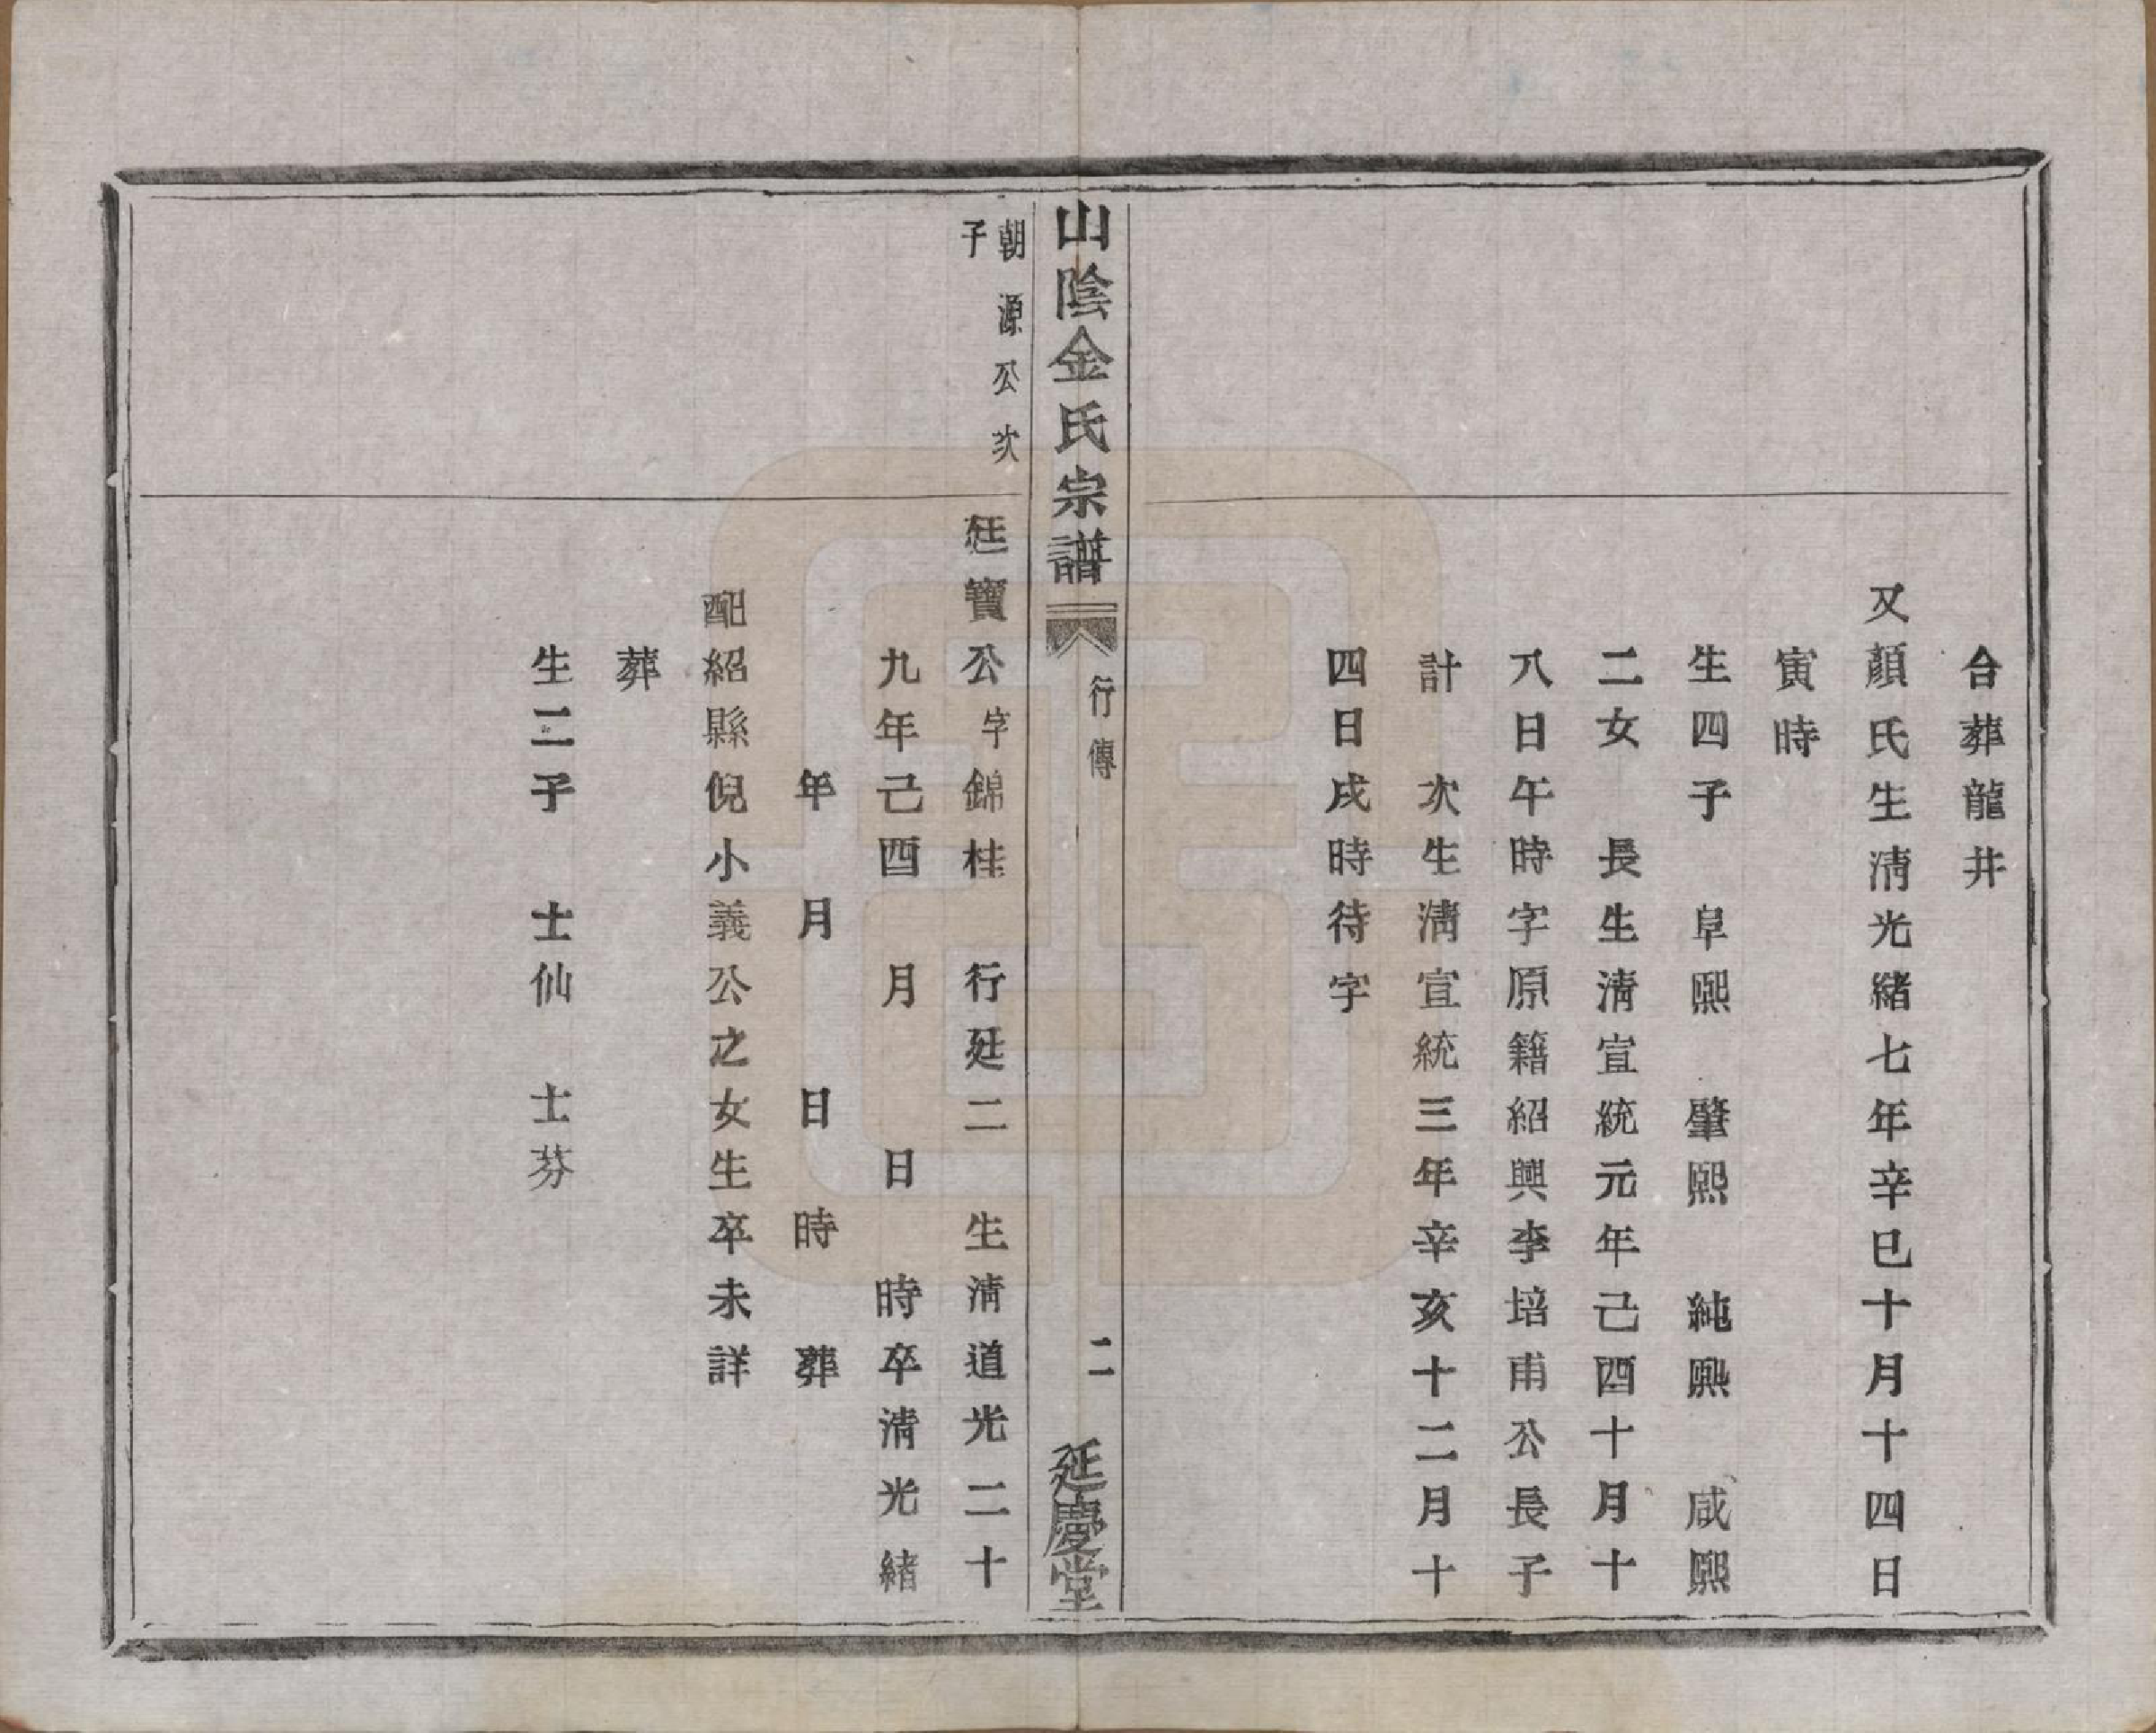 合葬龍井
又顏氏生淸光緒七年辛巳十月十四日
寅時
生四子　阜熙　肇熙　純熙　咸熙
二女　長生淸宣統元年己酉十月十
八日午時字原籍紹興李培甫公長子
計　次生淸宣統三年辛亥十二月十
四日戌時待字
山陰金氏宗譜
行傳
二
延慶堂
朝源公次
子
廷寶公字錦桂　行廷二　生淸道光二十
九年己酉　月　　日　時卒淸光緒
年　月　　日　時　葬
配紹縣倪小義公之女生卒未詳
葬
生二子　士仙　士芬